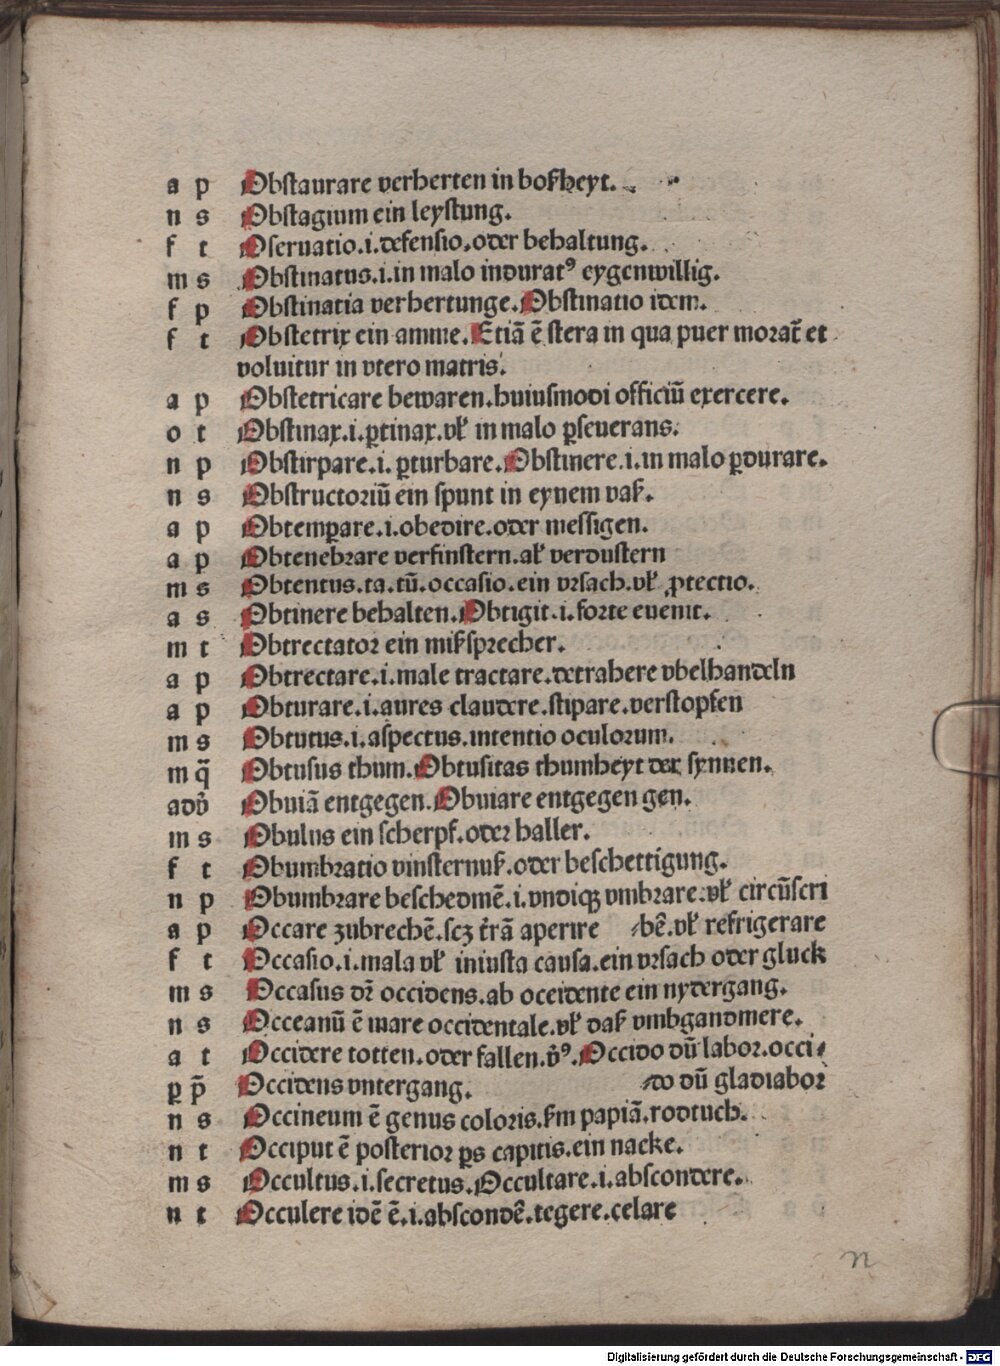 a p Obstaurare verherten in boſzheyt.
n s Obstagium ein leyſtung.
f t Oſeruatio.i.defenſio.oder behaltung.
m s Obſtinatus.i.in malo indurat⁹ eygenwillig.
f p Obſtinatia verhertunge.Obſtinatio idem.
f t Obſtetrix ein amme.Etiā ē ſtera in qua puer morat̄ et
voluitur in vtero matris.
a p Obſtetricare bewaren.huiuſmodi officiū exercere.
o t Obſtinax.i.ꝑtinax.vl̛ in malo ꝑſeuerans.
n p Obſtirpare.i.ꝑturbare.Obſtinere.i.in malo ꝑdurare.
n s Obſtructoriū ein ſpunt in eynem vaſz.
a p Obtemꝑare.i.obedire.oder meſſigen.
a p Obtenebrare verfinſtern.al̛ verduſtern
m s Obtentus.ta.tū.occaſio.ein vrſach.vl̛ ꝓtectio.
a s Obtinere behalten.Obtigit.i.forte euenit.
m t Obtrectator ein miſzſprecher.
a p Obtrectare.i.male tractare.detrahere vbelhandeln
a p Obturare.i.aures claudere.ſtipare.verſtopfen
m s Obtutus.i.aſpectus.intentio oculorum.
m q̄ Obtuſus thum.Obtuſitas thumheyt der ſynnen.
adv̓ Obuiā entgegen.Obuiare entgegen gen.
m s Obulus ein ſcherpf.oder haller.
f t Obumbratio vinſternuſz.oder beſchettigung.
n p Obumbrare beſchedmē.i.vndiqꝫ vmbrare.vl̛ circūſcri
a p Occare zubrechē.ſcꝫ t̄rā aperire ⸗bē.vl̛ refrigerare
f t Occaſio.i.mala vl̛ iniuſta cauſa.ein vrſach oder gluck
m s Occaſus dr̄ occidens.ab oceidente ein nydergang.
n s Occeanū ē mare occidentale.vl̛ daſz vmbgandmere.
a t Occidere totten.oder fallen.v̓⁹.Occido dū labor.occi⸗
ꝑ p̄ Occidens vntergang. ⸗do dū gladiabor
n s Occineum ē genus coloris.ſm papiā.rodtuch.
n t Occiput ē poſterior ꝑs capitis.ein nacke.
m s Occultus.i.ſecretus.Occultare.i.abſcondere.
n t Occulere idē ē.i.abſcondē.tegere.celare
n
Digitalisierung gefördert durch die Deutsche Forschungsgemeinschaft - DFG